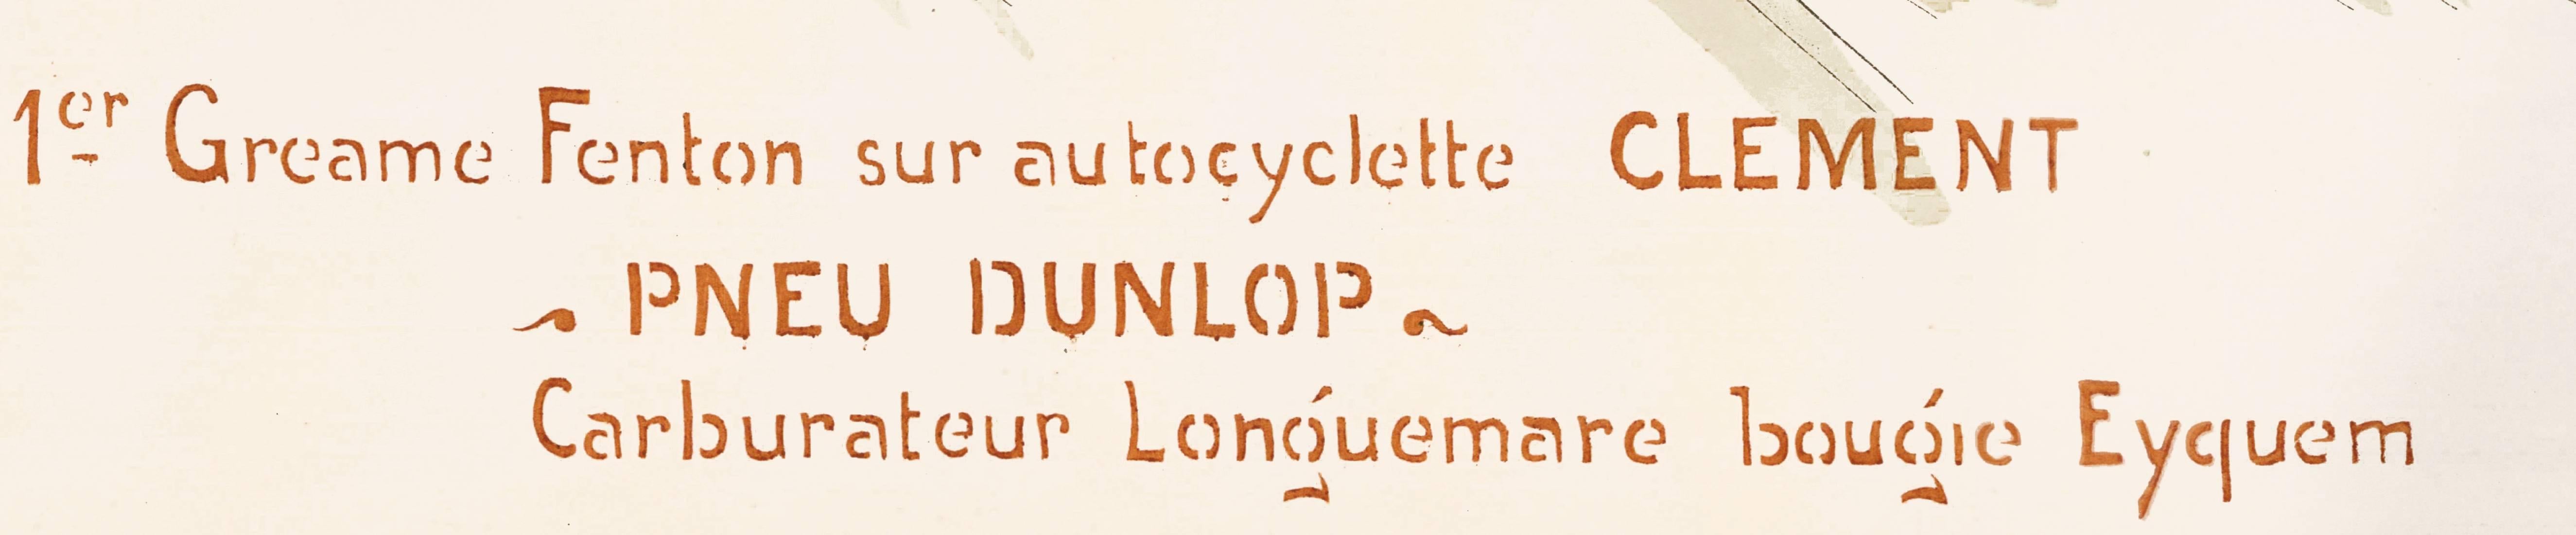 1er Greame Fenton sur autocyclette CLEMENT
~ PNEU DUNLOP ~
Carburateur Longuemare bougie Eyquem